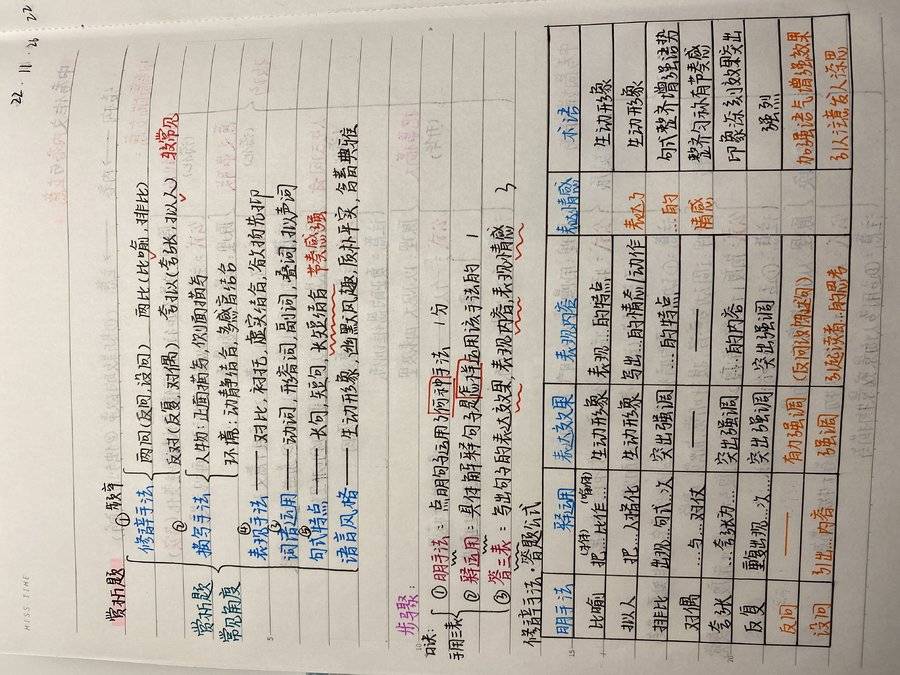 22.11.26 22
MISS TIME
赏析题
①频率
修辞手法 两问(反问,设问) 两比(比喻,排比)
反对(反复,对偶) 夸拟(夸张,拟人) 较常见
②
描写手法 人物:正面描写,侧面描写
赏析题
常见角度
环境:动静结合,多感官结合
④
表现手法 —— 对比,衬托,虚实结合,欲扬先抑
③
词语运用 —— 动词,形容词,副词,叠词,拟声词
⑤
句式特点 —— 长句,短句,长短结合 节奏感强
语言风格 —— 生动形象,幽默风趣,质朴平实,含蓄典雅
步骤:
口诀: ① 明手法:点明句运用了何种手法 1分
手用三表
② 释运用:具体解释句是怎样运用该手法的 1
③ 答三表:写出句的表达效果,表现内容,表现情感 3
修辞手法·答题公式
明手法 释运用 表达效果 表现内容 表达情感 术语
比喻 把…比作… 生动形象 表现…的特点 表达了 生动形象
拟人 把…人格化 生动形象 写出…的情态/动作 …的 生动形象
排比 出现…句式…次 突出强调 …的特点 情感 句式整齐增强语势
对偶 …与…对仗 —— —— 整齐匀称有节奏感
夸张 …夸张为… 突出强调 …的内容 印象深刻效果突出
反复 重复出现…次… 突出强调 突出强调 强烈
反问 —— 有力强调 (反问改陈述句) 加强语气增强效果
设问 引出…内容 强调 引起读者…的思考 引人注意发人深思